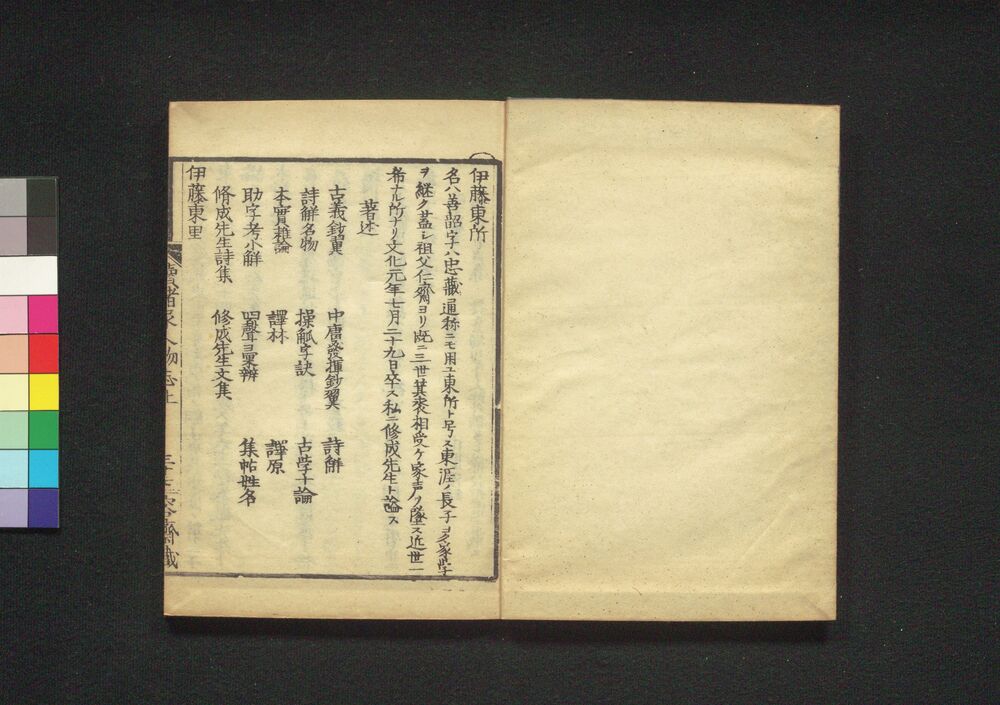 伊藤東所
名ハ善韶字ハ忠藏通称ニモ用ユ東所ト号ス東涯ノ長子ヨク家学
ヲ継ク蓋シ祖父仁齋ヨリ既ニ三世其裘相受ケ家声ヲ墜ス近世ニ
希ナル所ナリ文化元年七月二十九日卒ス私ニ修成先生ト諡ス
著述
古義鈔翼 中庸發揮鈔翼 詩解
詩解名物 操觚字訣 古学十論
本實雜論 譯林 譯原
助字考小解 四聲ヨ彙辨 集帖姓名
脩成先生詩集 修成先生文集
伊藤東里
續諸家人物志上